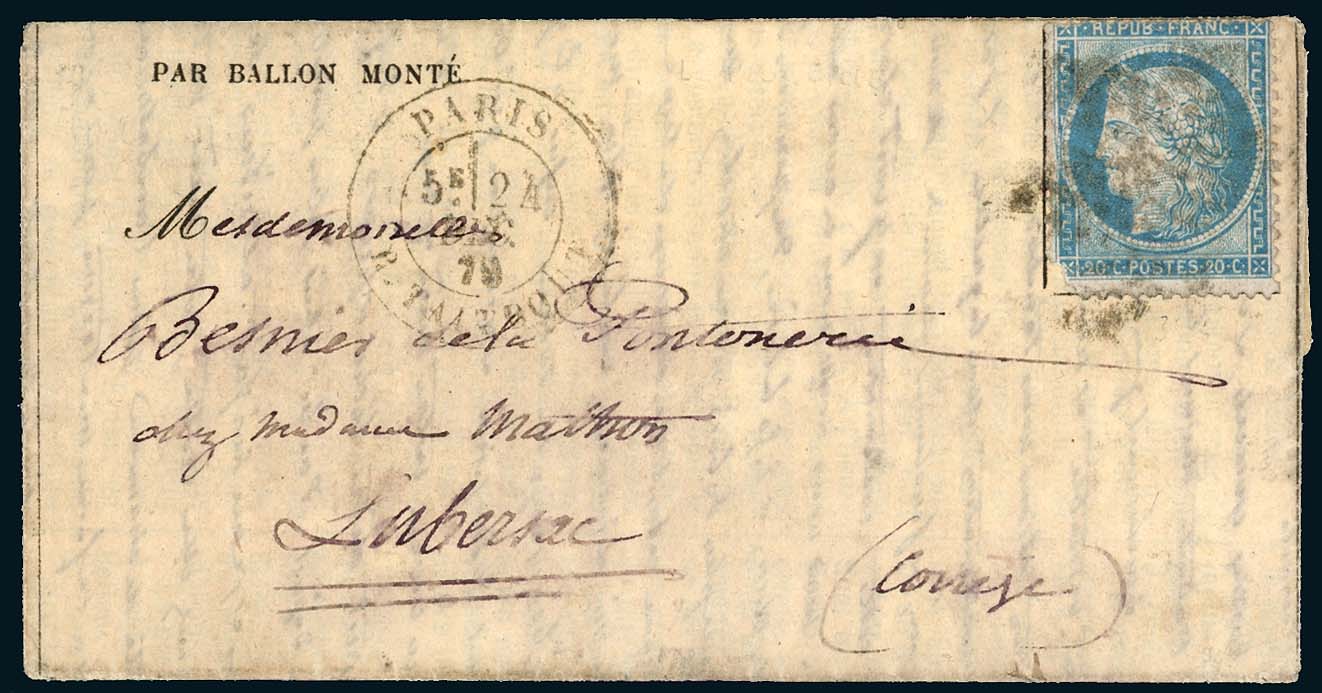 PAR BALLON MONTÉ
REPUB·FRANC·
PARIS
5E 24
DEC.
70
R. TAITBOUT
20·C·POSTES·20·C
Mesdemoiselles
Besnier de la Pontonerie
chez Madame Mathon
Lubersac
(Corrèze)